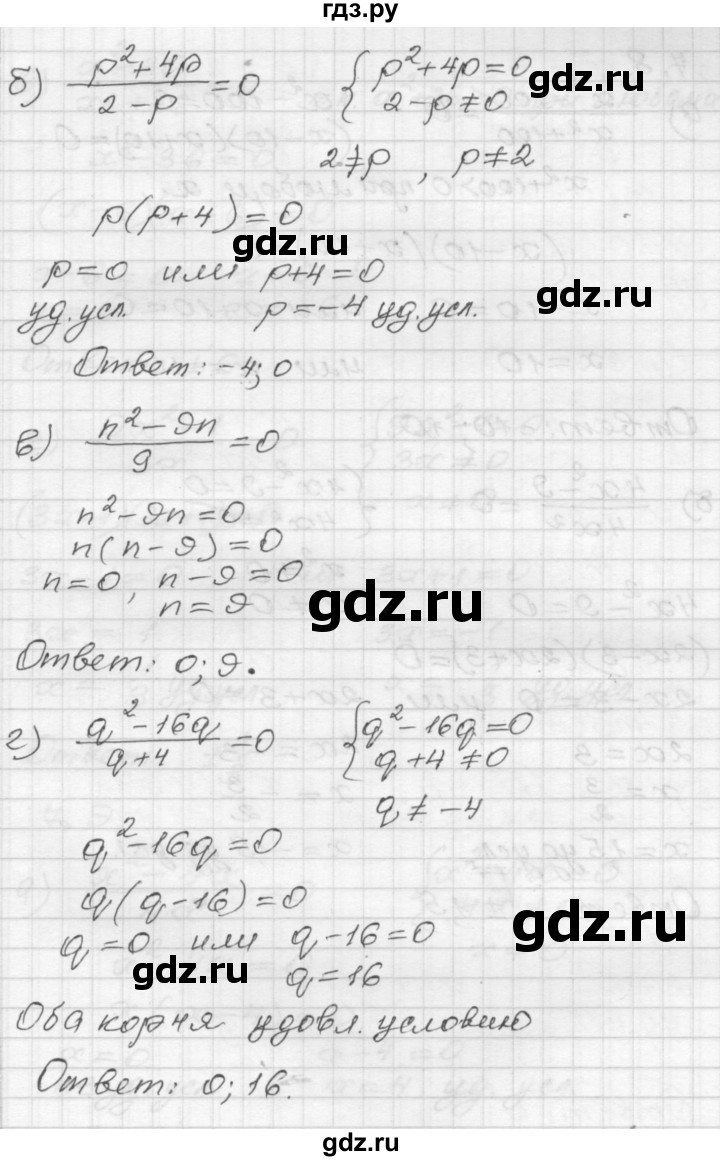 гдз.ру
б) (p²+4p)/(2-p) = 0 { p²+4p=0
2-p≠0
2≠p , p≠2
p(p+4)=0
gdz.ru
p=0 или p+4=0
gdz.ru
уд.усл. p=-4 уд.усл.
Ответ: -4; 0
в) (n²-9n)/9 = 0
n²-9n=0
n(n-9)=0
n=0, n-9=0
gdz.ru
n=9
Ответ: 0; 9.
г) (q²-16q)/(q+4) = 0 { q²-16q=0
q+4≠0
q≠-4
q²-16q=0
q(q-16)=0
gdz.ru
q=0 или q-16=0
gdz.ru
q=16
Оба корня удовл. условию
Ответ: 0; 16.
gdz.ru